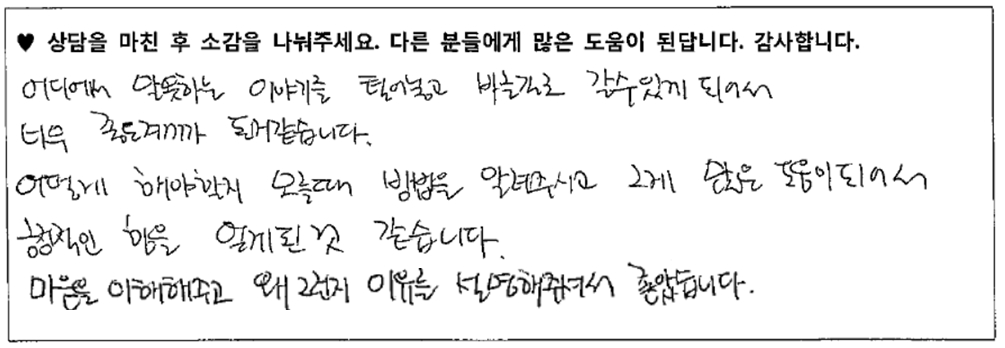 ♥ 상담을 마친 후 소감을 나눠주세요. 다른 분들에게 많은 도움이 된답니다. 감사합니다.
어디에서 말못하는 이야기를 털어놓고 바른길로 갈수있게 되어서
너무 좋은계기가 된거같습니다.
어떻게 해야할지 모를때 방법을 알려주시고 그게 많은 도움이되어서
힘을 얻게된 것 같습니다.
마음을 이해해주고 왜 그런지 이유를 설명해줘서 좋았습니다.